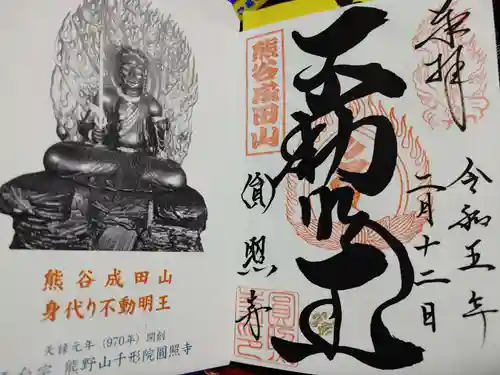 熊谷成田山
身代り不動明王
天禄元年(970年)開創
熊野山千形院圓照寺
奉拝
令和五年
二月十二日
不動明王
熊谷成田山
圓照寺